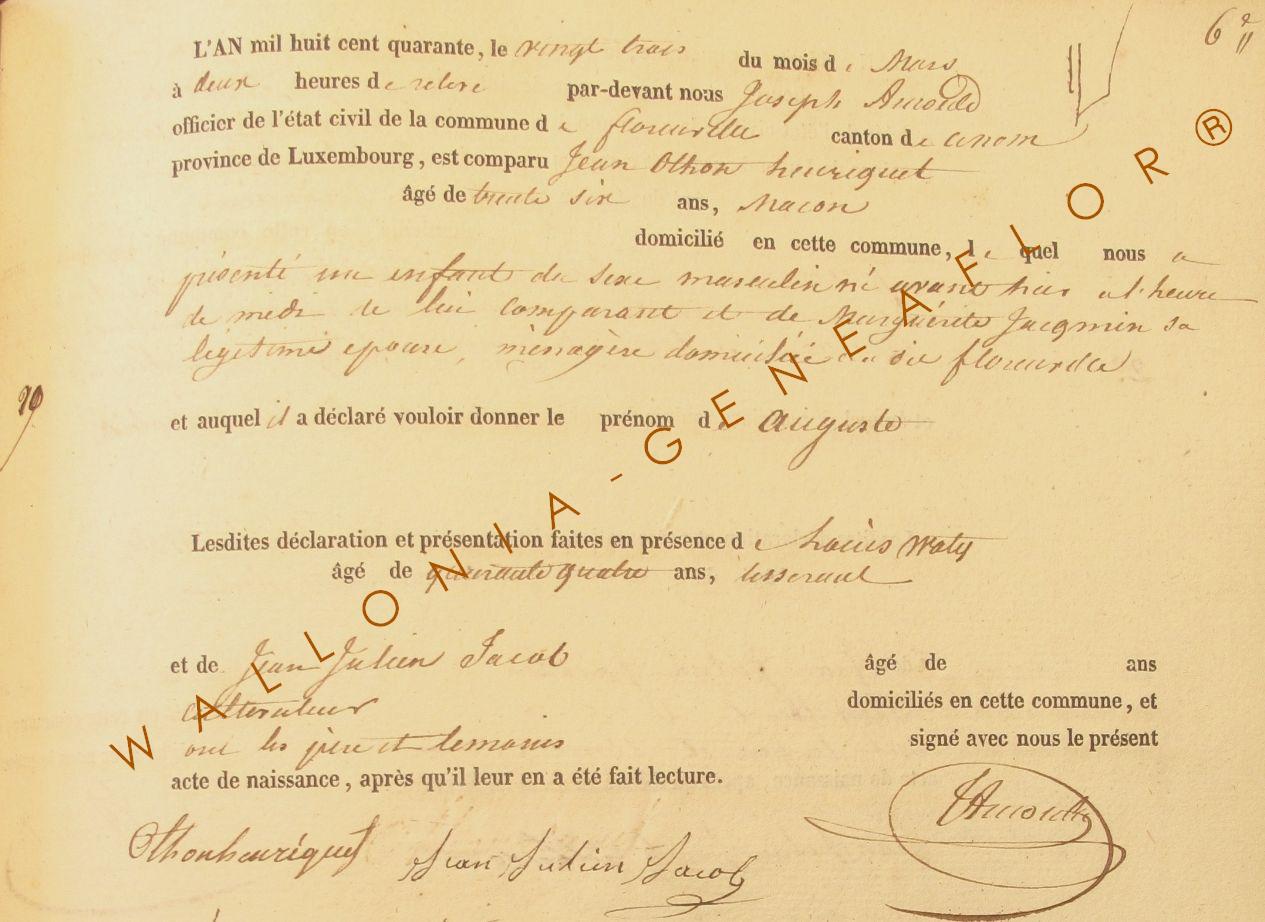 6e
L'AN mil huit cent quarante, le vingt trois du mois de Mars
à deux heures de relevé par-devant nous Joseph
officier de l'état civil de la commune de canton de
province de Luxembourg, est comparu Jean Othon henriquet
âgé de trente six ans, Macon
domicilié en cette commune, le quel nous a
présenté un enfant du sexe masculin né avant hier a l'heure
de midi de lui comparant et de Marguérite Jacqmin sa
légitime epouse, ménagère domiciliée
et auquel il a déclaré vouloir donner le prénom de auguste
19
Lesdites déclaration et présentation faites en présence de Louis Waty
âgé de quarante quatre ans, tisserand
et de Jean Julien Jacob âgé de ans
cultivateur domiciliés en cette commune, et
ont les père et temoins signé avec nous le présent
acte de naissance, après qu'il leur en a été fait lecture.
Othonhenriquet Jean Julien Jacob
WALLONIA-GENEAFLOR®